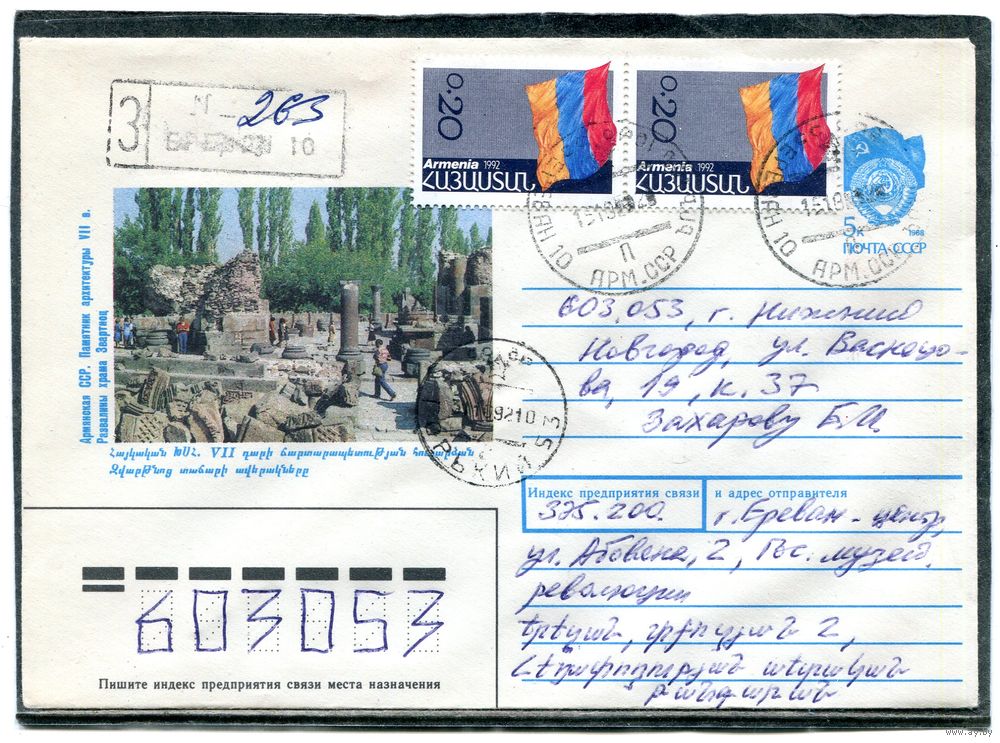 З
N 263
ЕРЕВАН 10
0.20
Armenia 1992
ՀԱՅԱՍՏԱՆ
0.20
Armenia 1992
ՀԱՅԱՍՏԱՆ
5к
1988
ПОЧТА СССР
ЕРЕВАН 10
П
АРМ.ССР
ЕРЕВАН 10
П
АРМ.ССР
Армянская ССР. Памятник архитектуры VII в.
Развалины храма Звартноц
Հայկական ՍՍՀ. VII դարի ճարտարապետության հուշարձան
Զվարթնոց տաճարի ավերակները
603.053, г. Нижний
Новгород, ул.
ва, 19, к. 37
Захарову Б.И.
Индекс предприятия связи и адрес отправителя
375.200. г. Ереван-центр,
ул. Абовяна, 2, Гос. музей
революции
Երևան, Աբովյան 2,
Հեղափոխության պետական
թանգարան
603053
Пишите индекс предприятия связи места назначения
www.ay.by